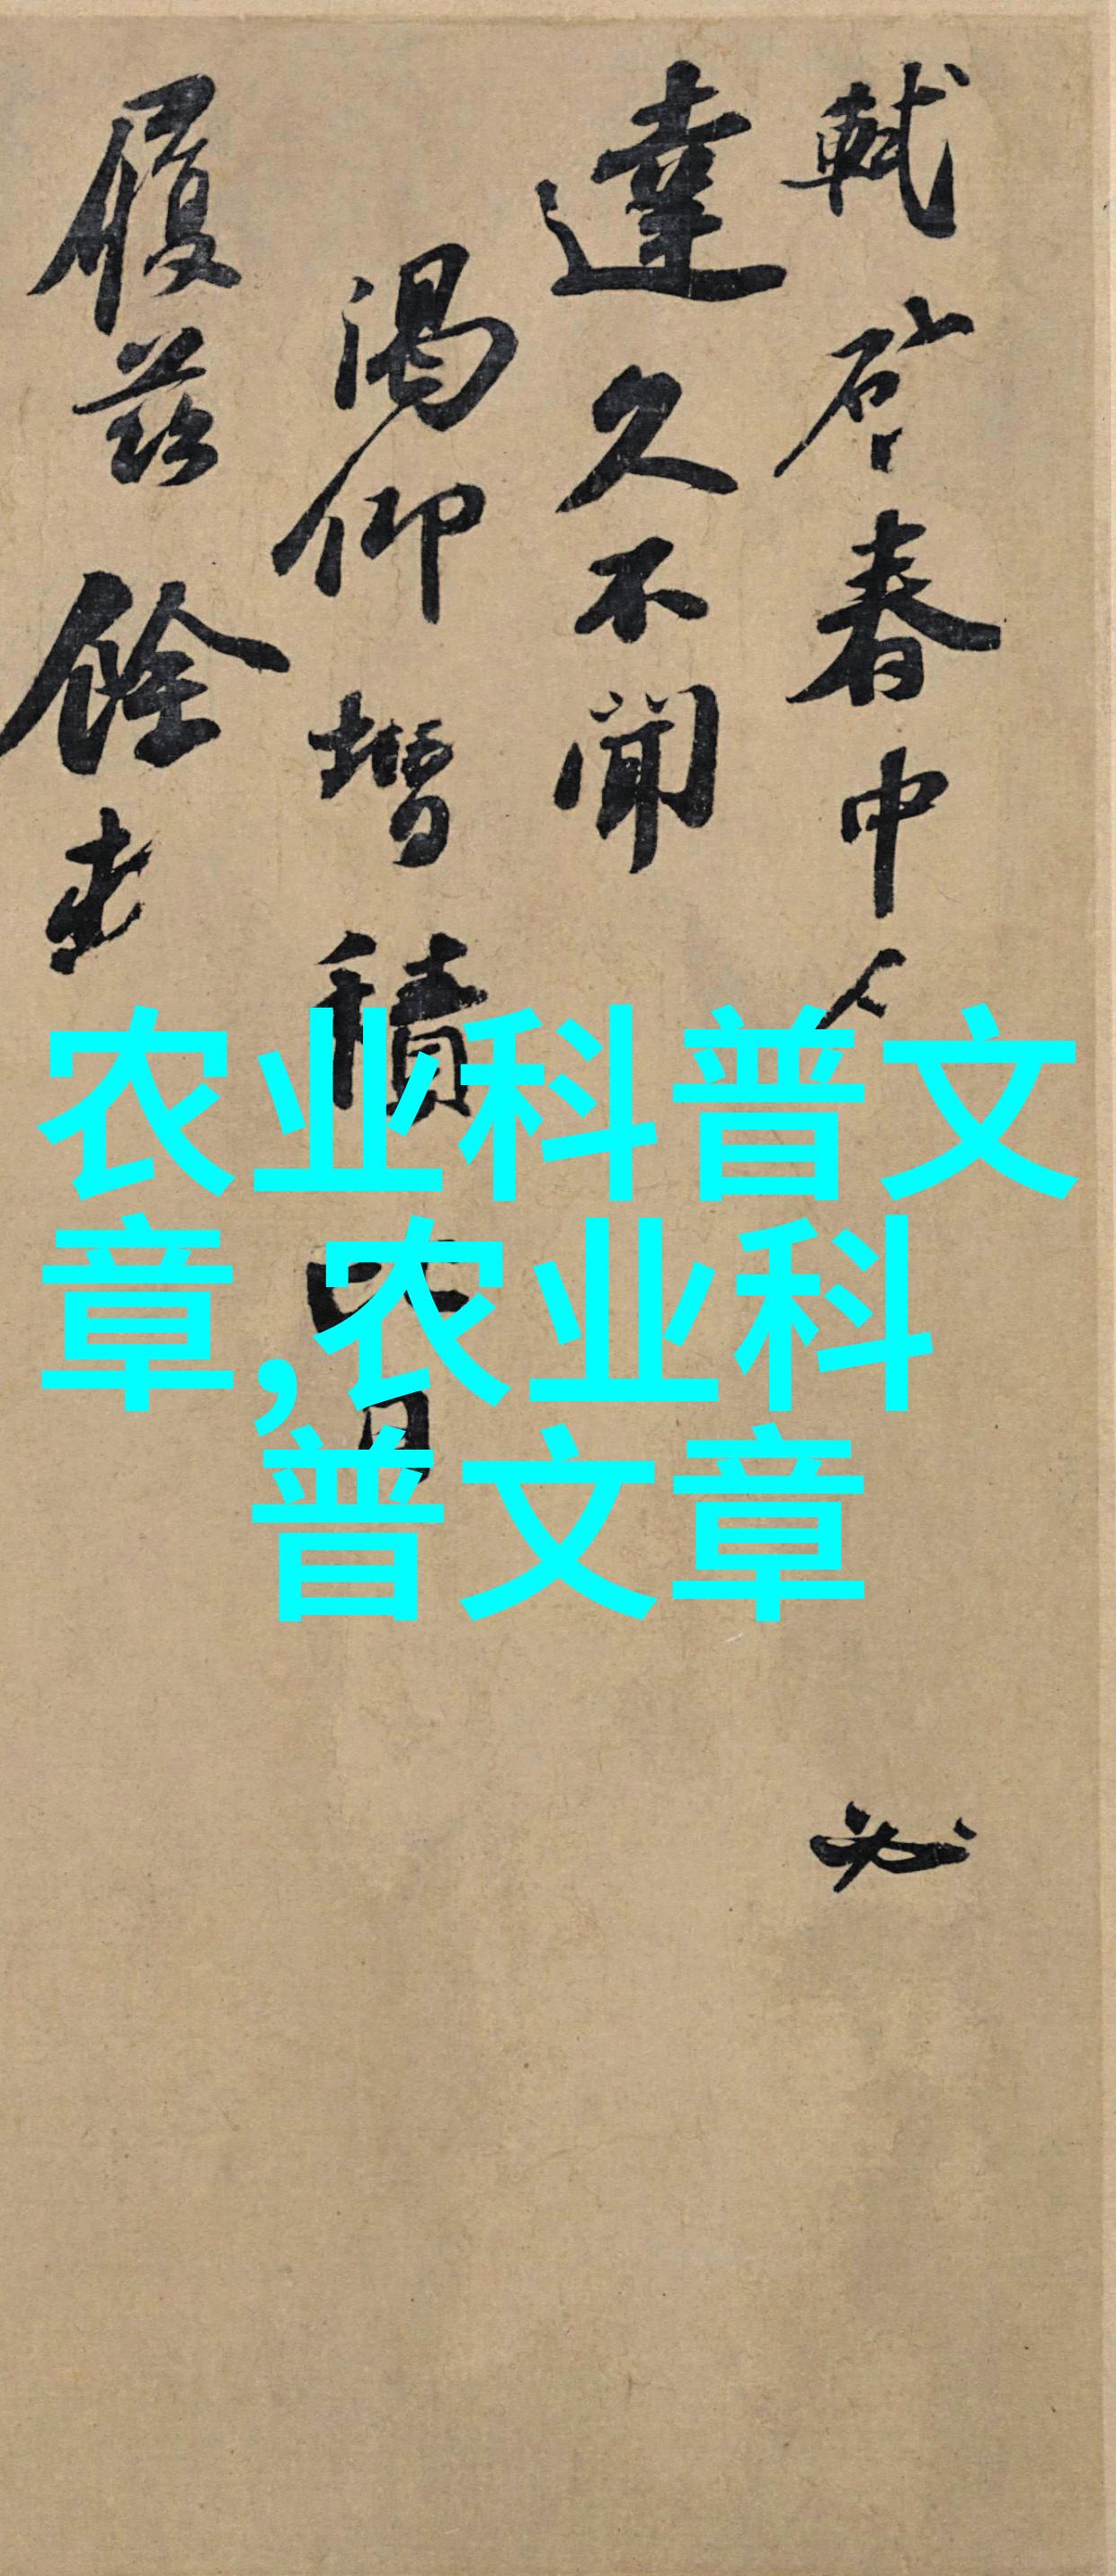 軾啓春中人必
達久不聞
渴仰增積日
履茲餘
农业科普文
章,农业科
普文章